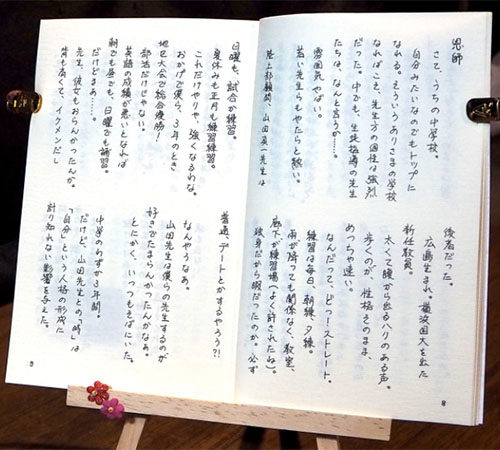 恩師
さて、うちの中学校。
自分みたいなのでもトップに
なれる。そういうありさまの学校
なればこそ、先生方の個性は強烈
だった。中でも、生徒指導の先生
たちは、なんと言うか……。
雰囲気やばい。
若い先生らもやたらと熱い。
陸上部顧問、山田英一先生は
後者だった。
広島生まれ。横浜国大を出た
新任教員。
太くて腹から出るハリのある声。
歩くのが、性格そのまま、
めっちゃ速い。
なんだって、どっ!ストレート。
練習は毎日、朝練、夕練。
雨が降っても関係なく、教室、
廊下が練習場(よく許されたね)。
独身だから暇だったのか、必ず
8
日曜も、試合か練習。
夏休みも正月も練習練習。
これだけやりゃ、強くなるわな。
おかげで僕ら、3年のとき
地区大会で総合優勝!
部活だけじゃない。
英語の成績が悪いとなれば
朝でも昼でも、日曜でも補習。
だけどまぁ……。
先生、彼女もおらんかったんか。
背も高くて、イケメンだし
普通、デートとかするやろう?!
なんやろなぁ。
山田先生は僕らの先生するのが
好きでたまらんかったんかなぁ。
とにかく、いっつもそばにいた。
中学のわずか3年間。
だけど、山田先生との「時」は
「自分」という人格の形成に
計り知れない影響を与えた。
9